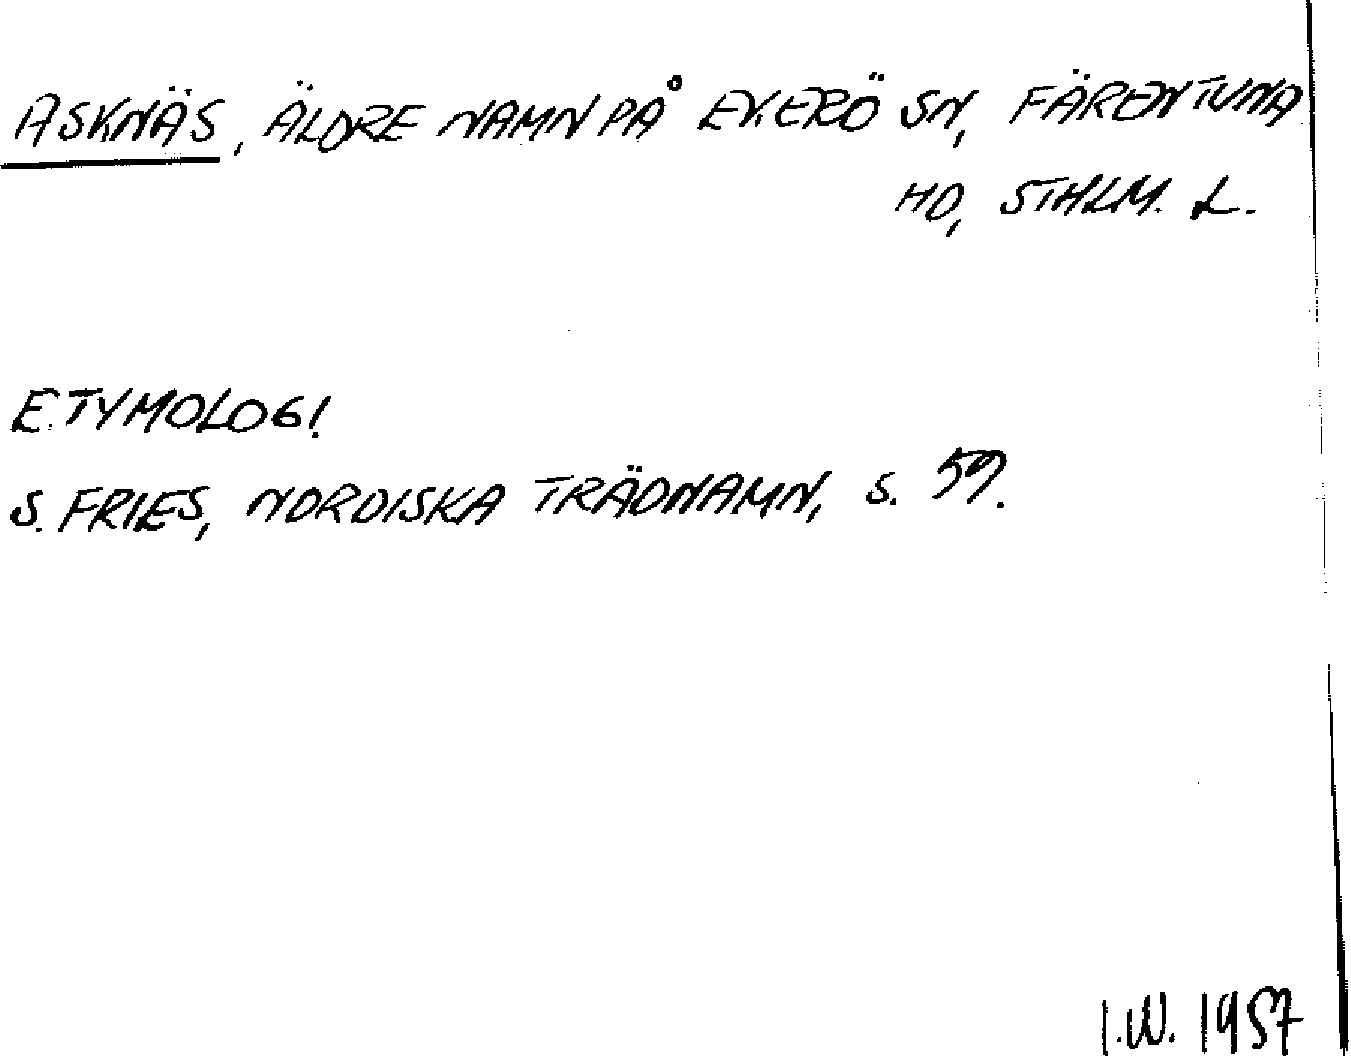 ASKNÄS, ÄLDRE NAMN PÅ EKERÖ SN, FÄRENTUNA
HD, STHLM. L.
ETYMOLOGI
S. FRIES, NORDISKA TRÄDNAMN, S. 59.
I.W. 1957